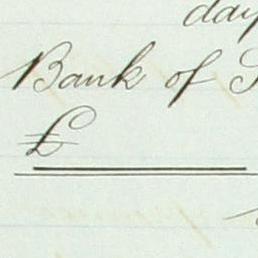 day
Bank of
£